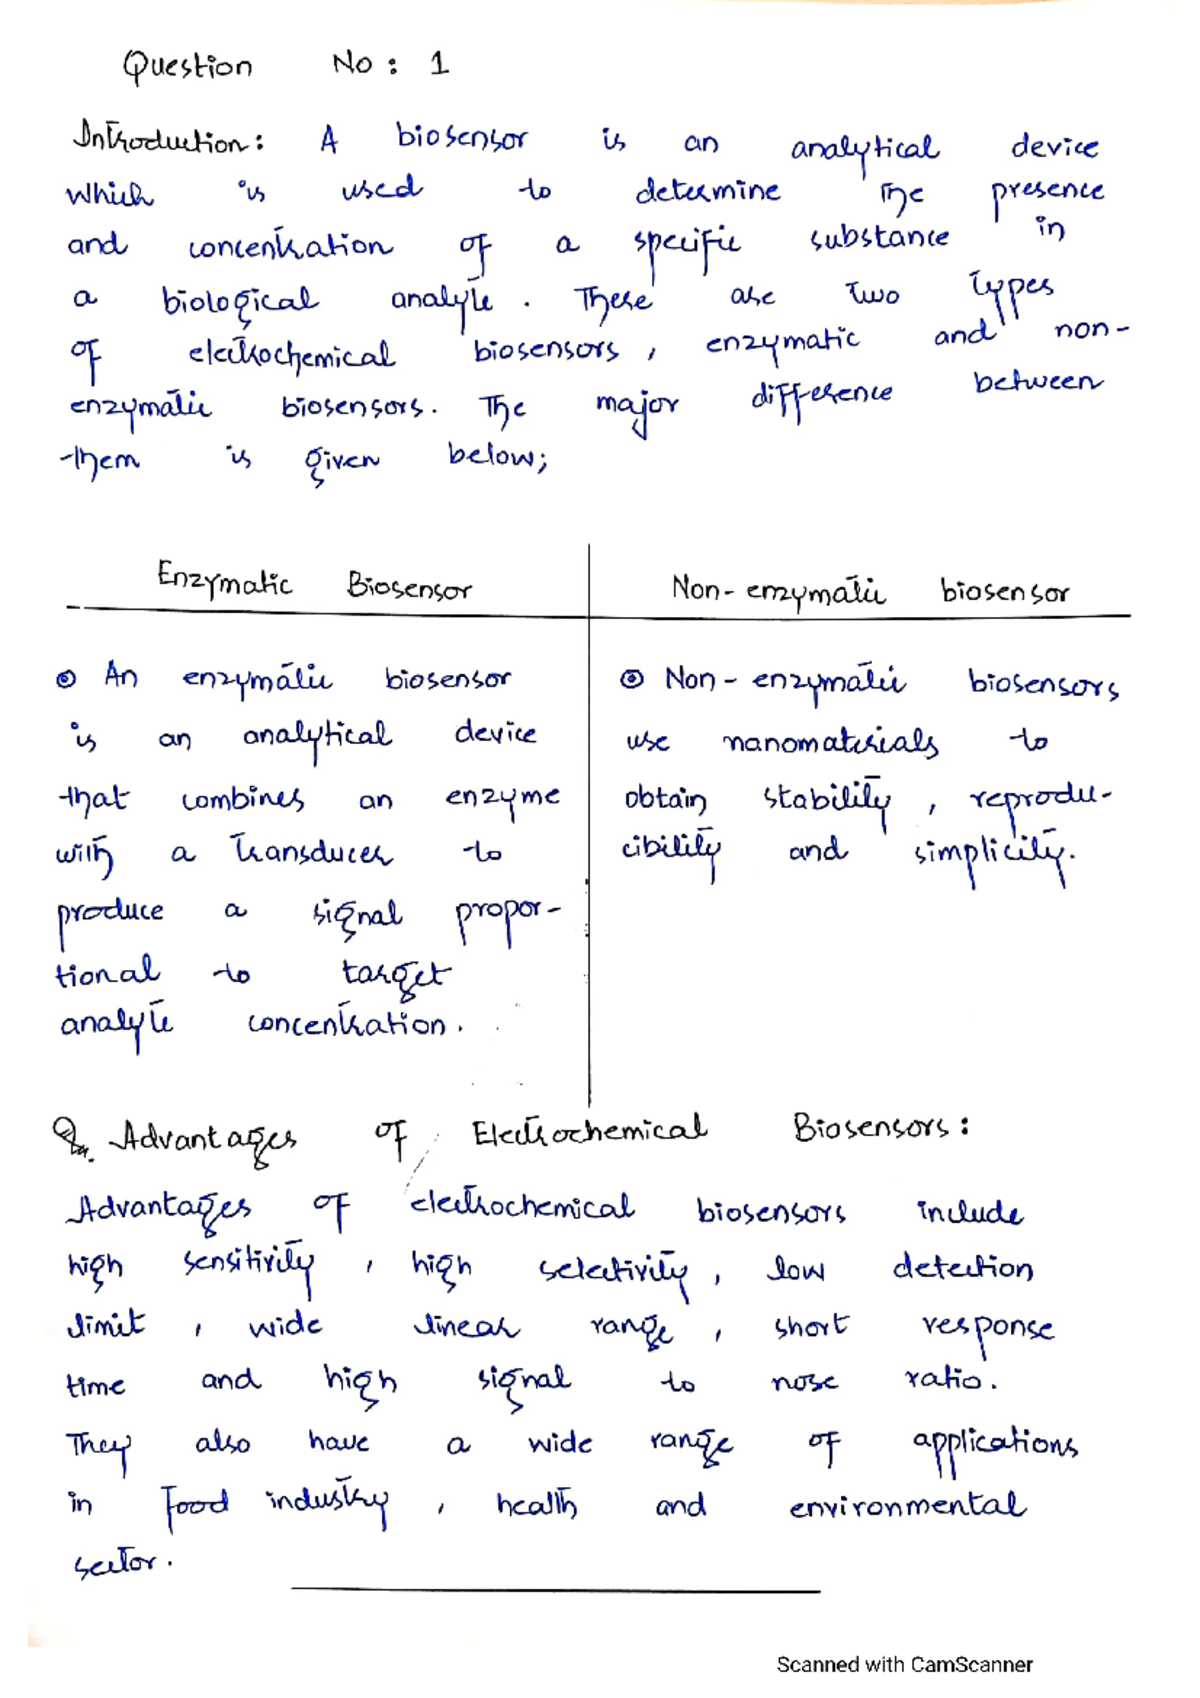 Question No: 1
Introduction: A biosensor is an analytical device
which is used to determine the presence
and concentration of a specific substance in
a biological analyte. These are two types
of electrochemical biosensors, enzymatic and non-
enzymatic biosensors. The major difference between
them is given below;
Enzymatic Biosensor
⊙ An enzymatic biosensor
is an analytical device
that combines an enzyme
with a transducer to
produce a signal propor-
tional to target
analyte concentration.
Non-enzymatic biosensor
⊙ Non-enzymatic biosensors
use nanomaterials to
obtain stability, reprodu-
cibility and simplicity.
Advantages of Electrochemical Biosensors:
Advantages of electrochemical biosensors include
high sensitivity, high selectivity, low detection
limit, wide linear range, short response
time and high signal to nose ratio.
They also have a wide range of applications
in food industry, health and environmental
sector.
Scanned with CamScanner